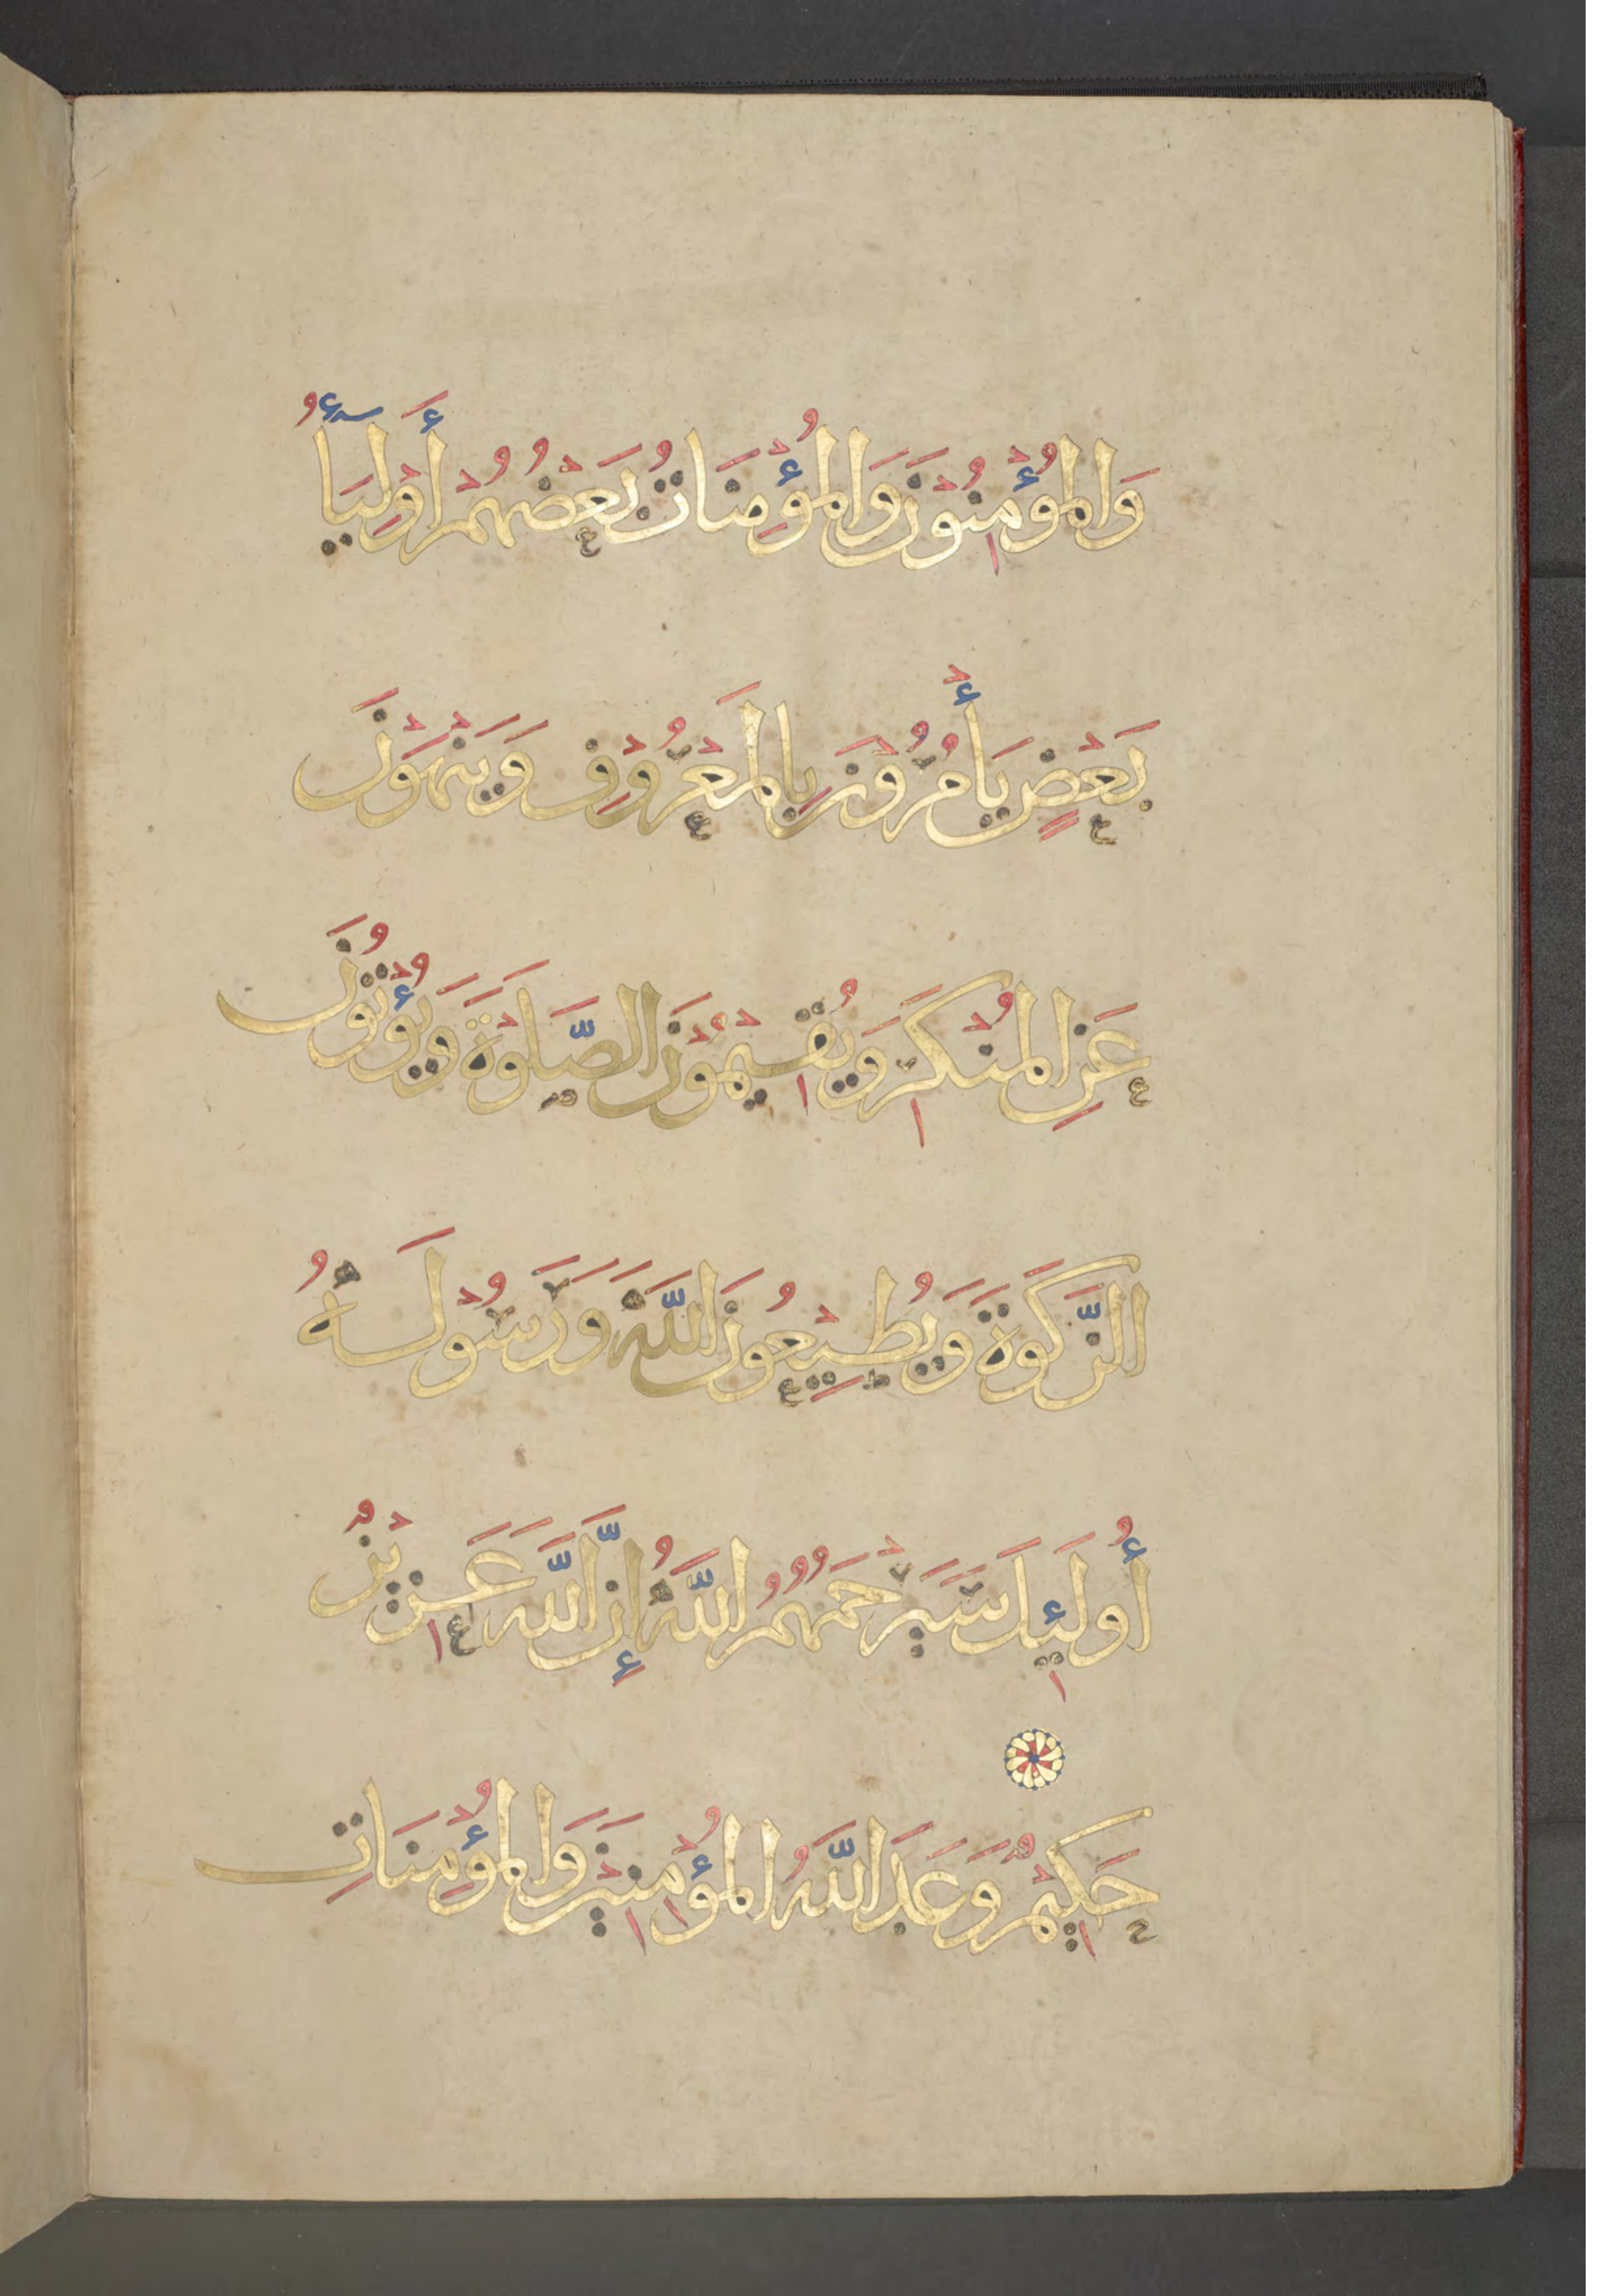 وَالْمُؤْمِنُوْنَ وَالْمُؤْمِنَاتُ بَعْضُهُمْ أَوْلِيَاُۤء
بَعْضٍ يَأْمُرُوْنَ بِالْمَعْرُوْفِ وَيَنْهَوْنَ
عَنِ الْمُنْكَرِ وَيُقِيْمُوْنَ الصَّلَوةَ وَيُؤْتُوْنَ
الزَّكَوةَ وَيُطِيْعُوْنَ اللَّهَ وَرَسُوْلَهُ
أُولَئِكَ سَيَرْحَمُهُمُ اللَّهُ إِنَّ اللَّهَ عَزِيْزٌ
حَكِيْمٌ وَعَدَ اللَّهُ الْمُؤْمِنِيْنَ وَالْمُؤْمِنَاتِ